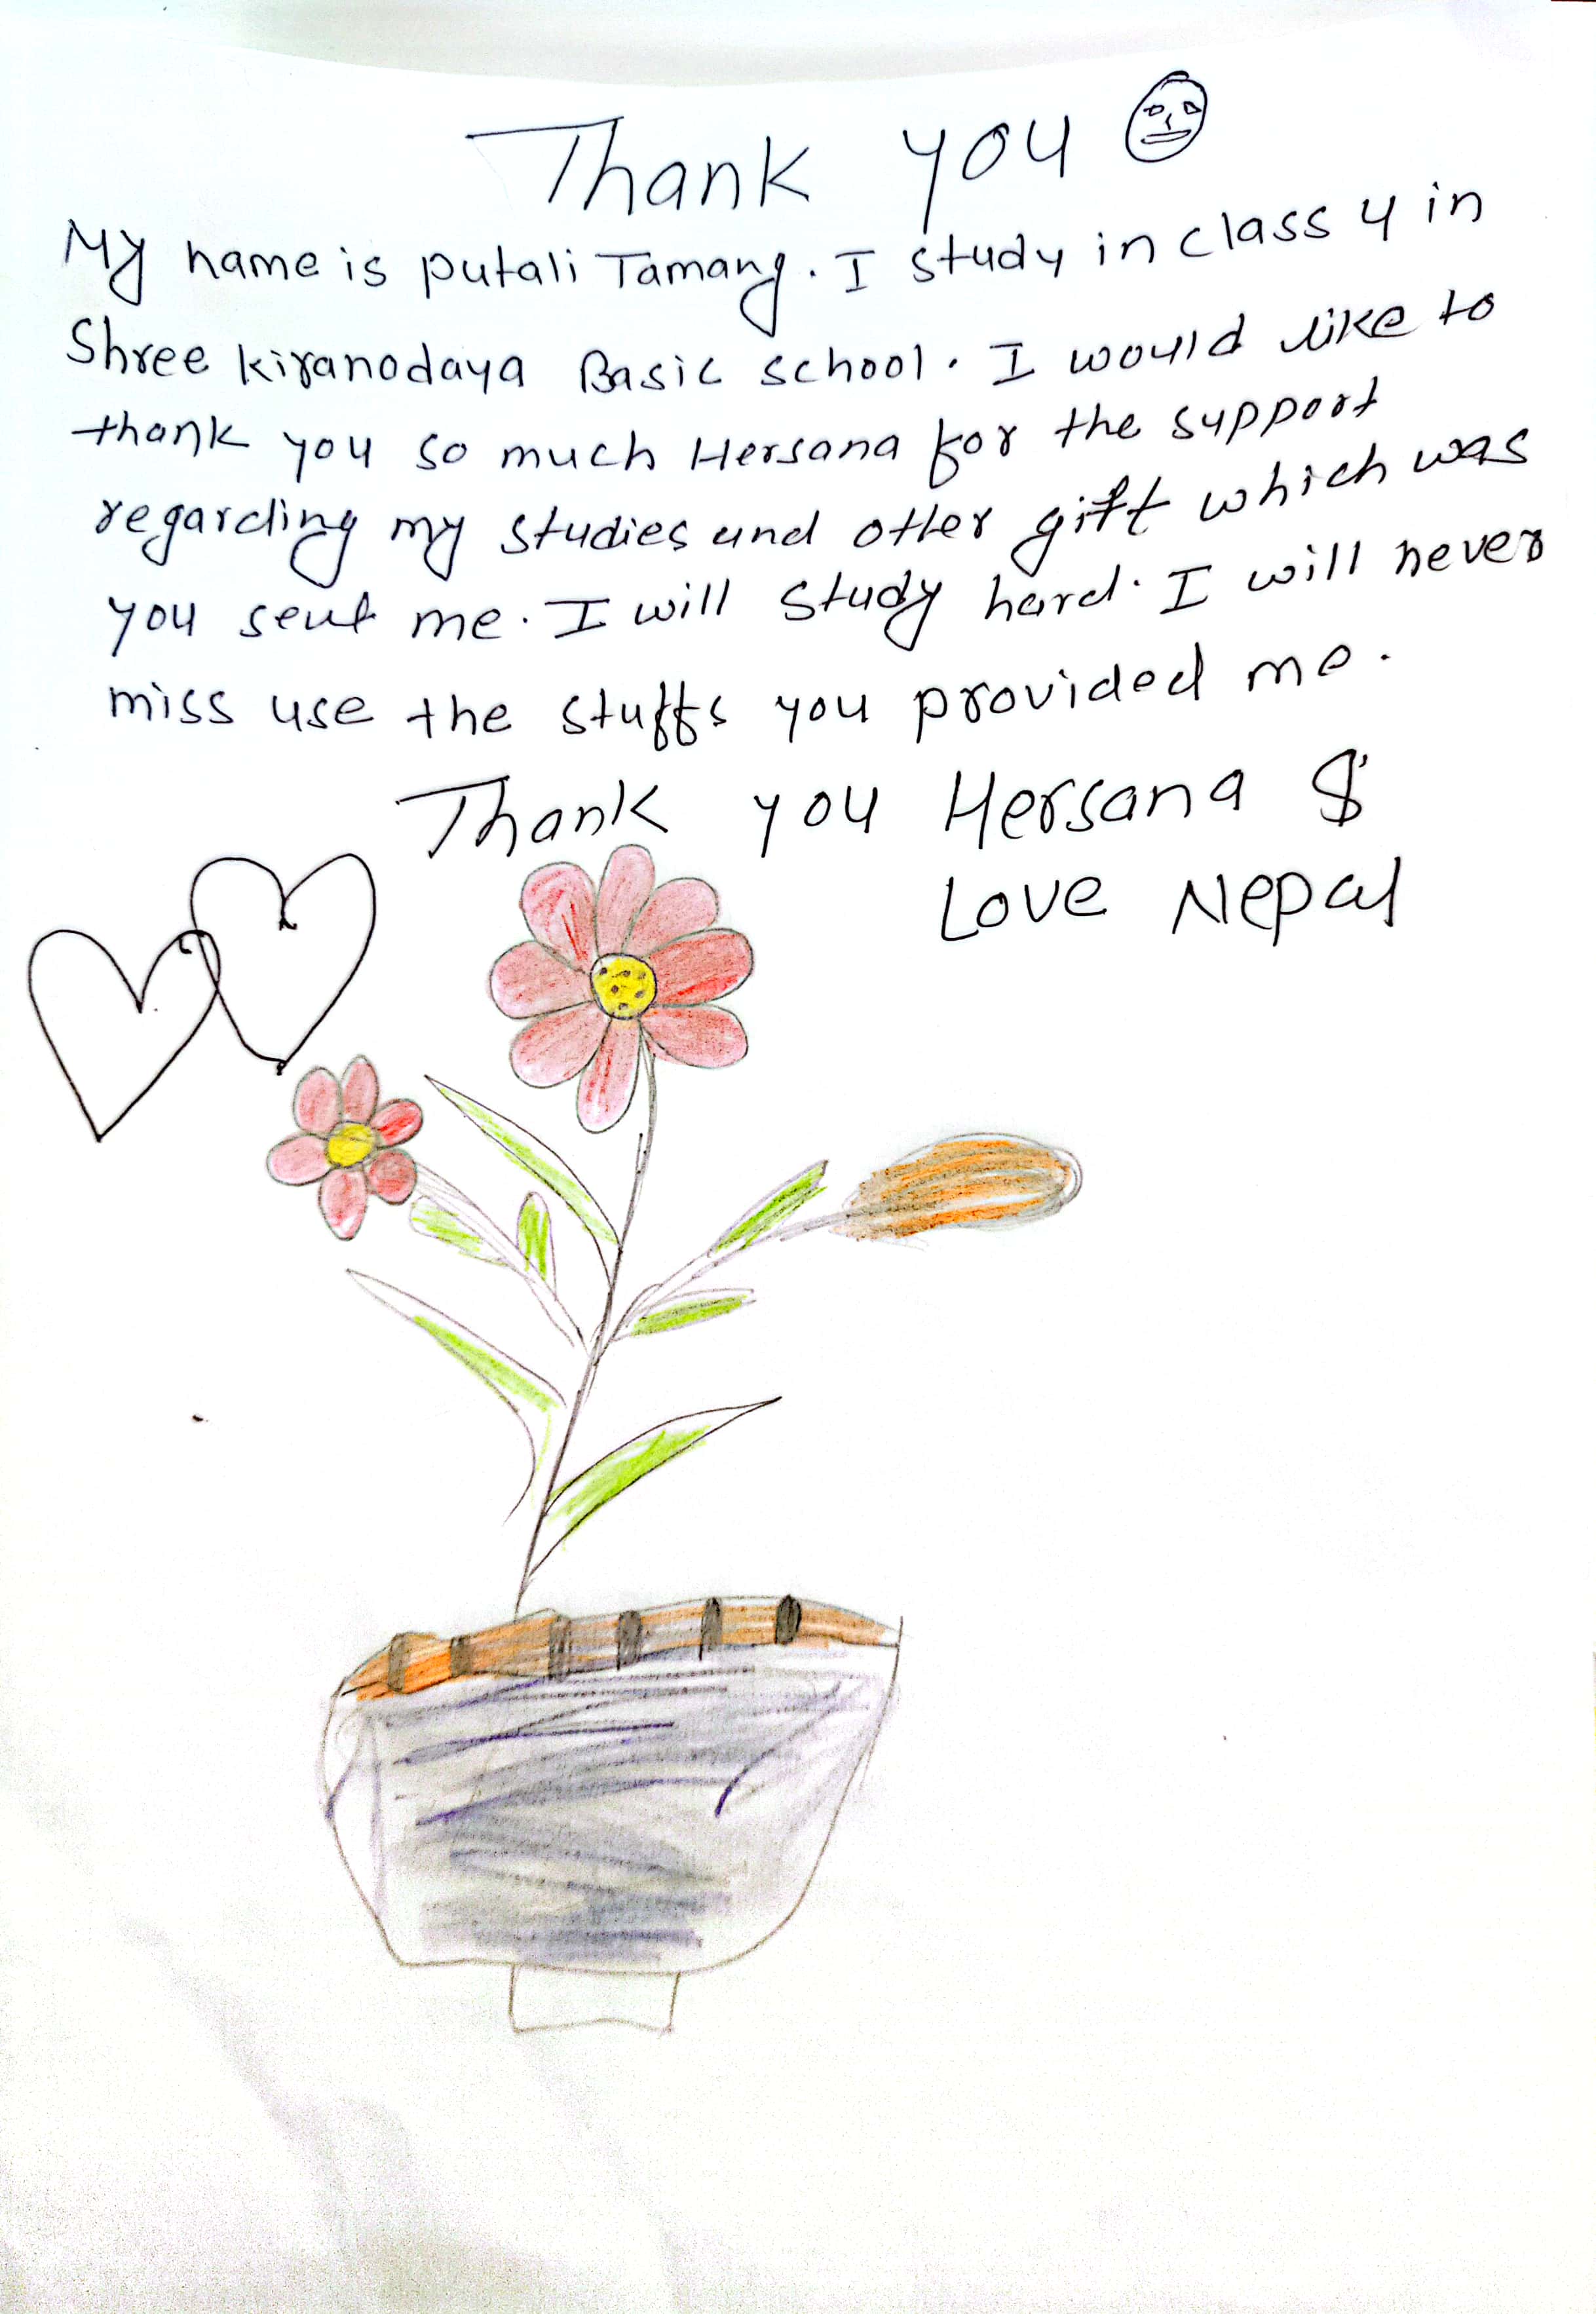 Thank you
My name is putali Tamang. I study in class 4 in
Shree kiranodaya Basic school. I would like to
thank you so much Hersana for the support
regarding my studies and other gift which was
you sent me. I will study hard. I will never
miss use the stuffs you provided me.
Thank you Hersana &
Love Nepal